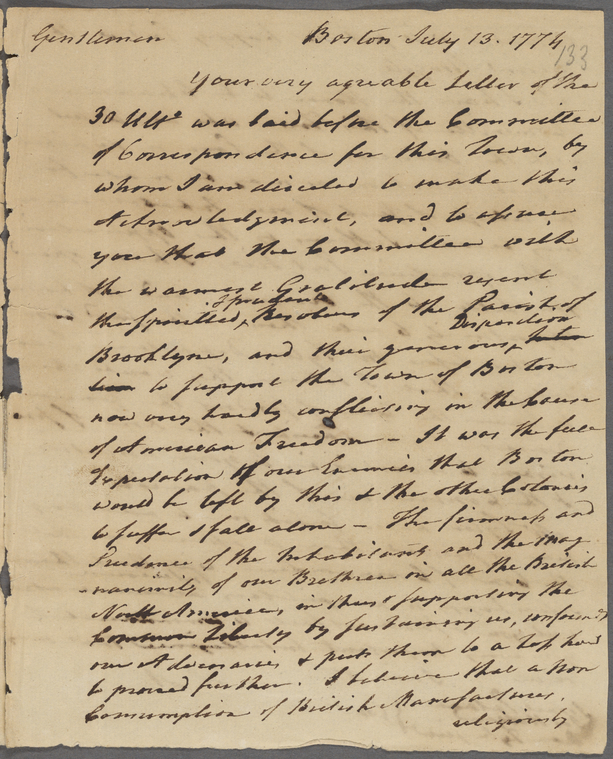 Gentlemen Boston July 13. 1774
133
Your very agreable Letter of the
30 Ulto was laid before the Committee
of Correspondence for this Town, by
whom I am directed to make this
Acknowledgment, and to assure
you that the Committee with
the warmest Gratitude
& prudent
the Spirited, Resolves of the Parish of
Disposition
Brooklyne, and their generous
to support the Town of Boston
now very hardly conflicting in the Cause
of American Freedom - It was the full
Expectation of our Enemies that Boston
would be left by this & the other Colonies
to suffer & fall alone - The firmness and
Prudence of the Inhabitants and the mag-
-nanimity of our Brethren in all the British
North America in thus supporting the
Common Liberty by sustaining us, confounds
our Adversaries & puts them to a loss how
to proceed further. I believe that a Non
Consumption of British Manufactures,
religiously